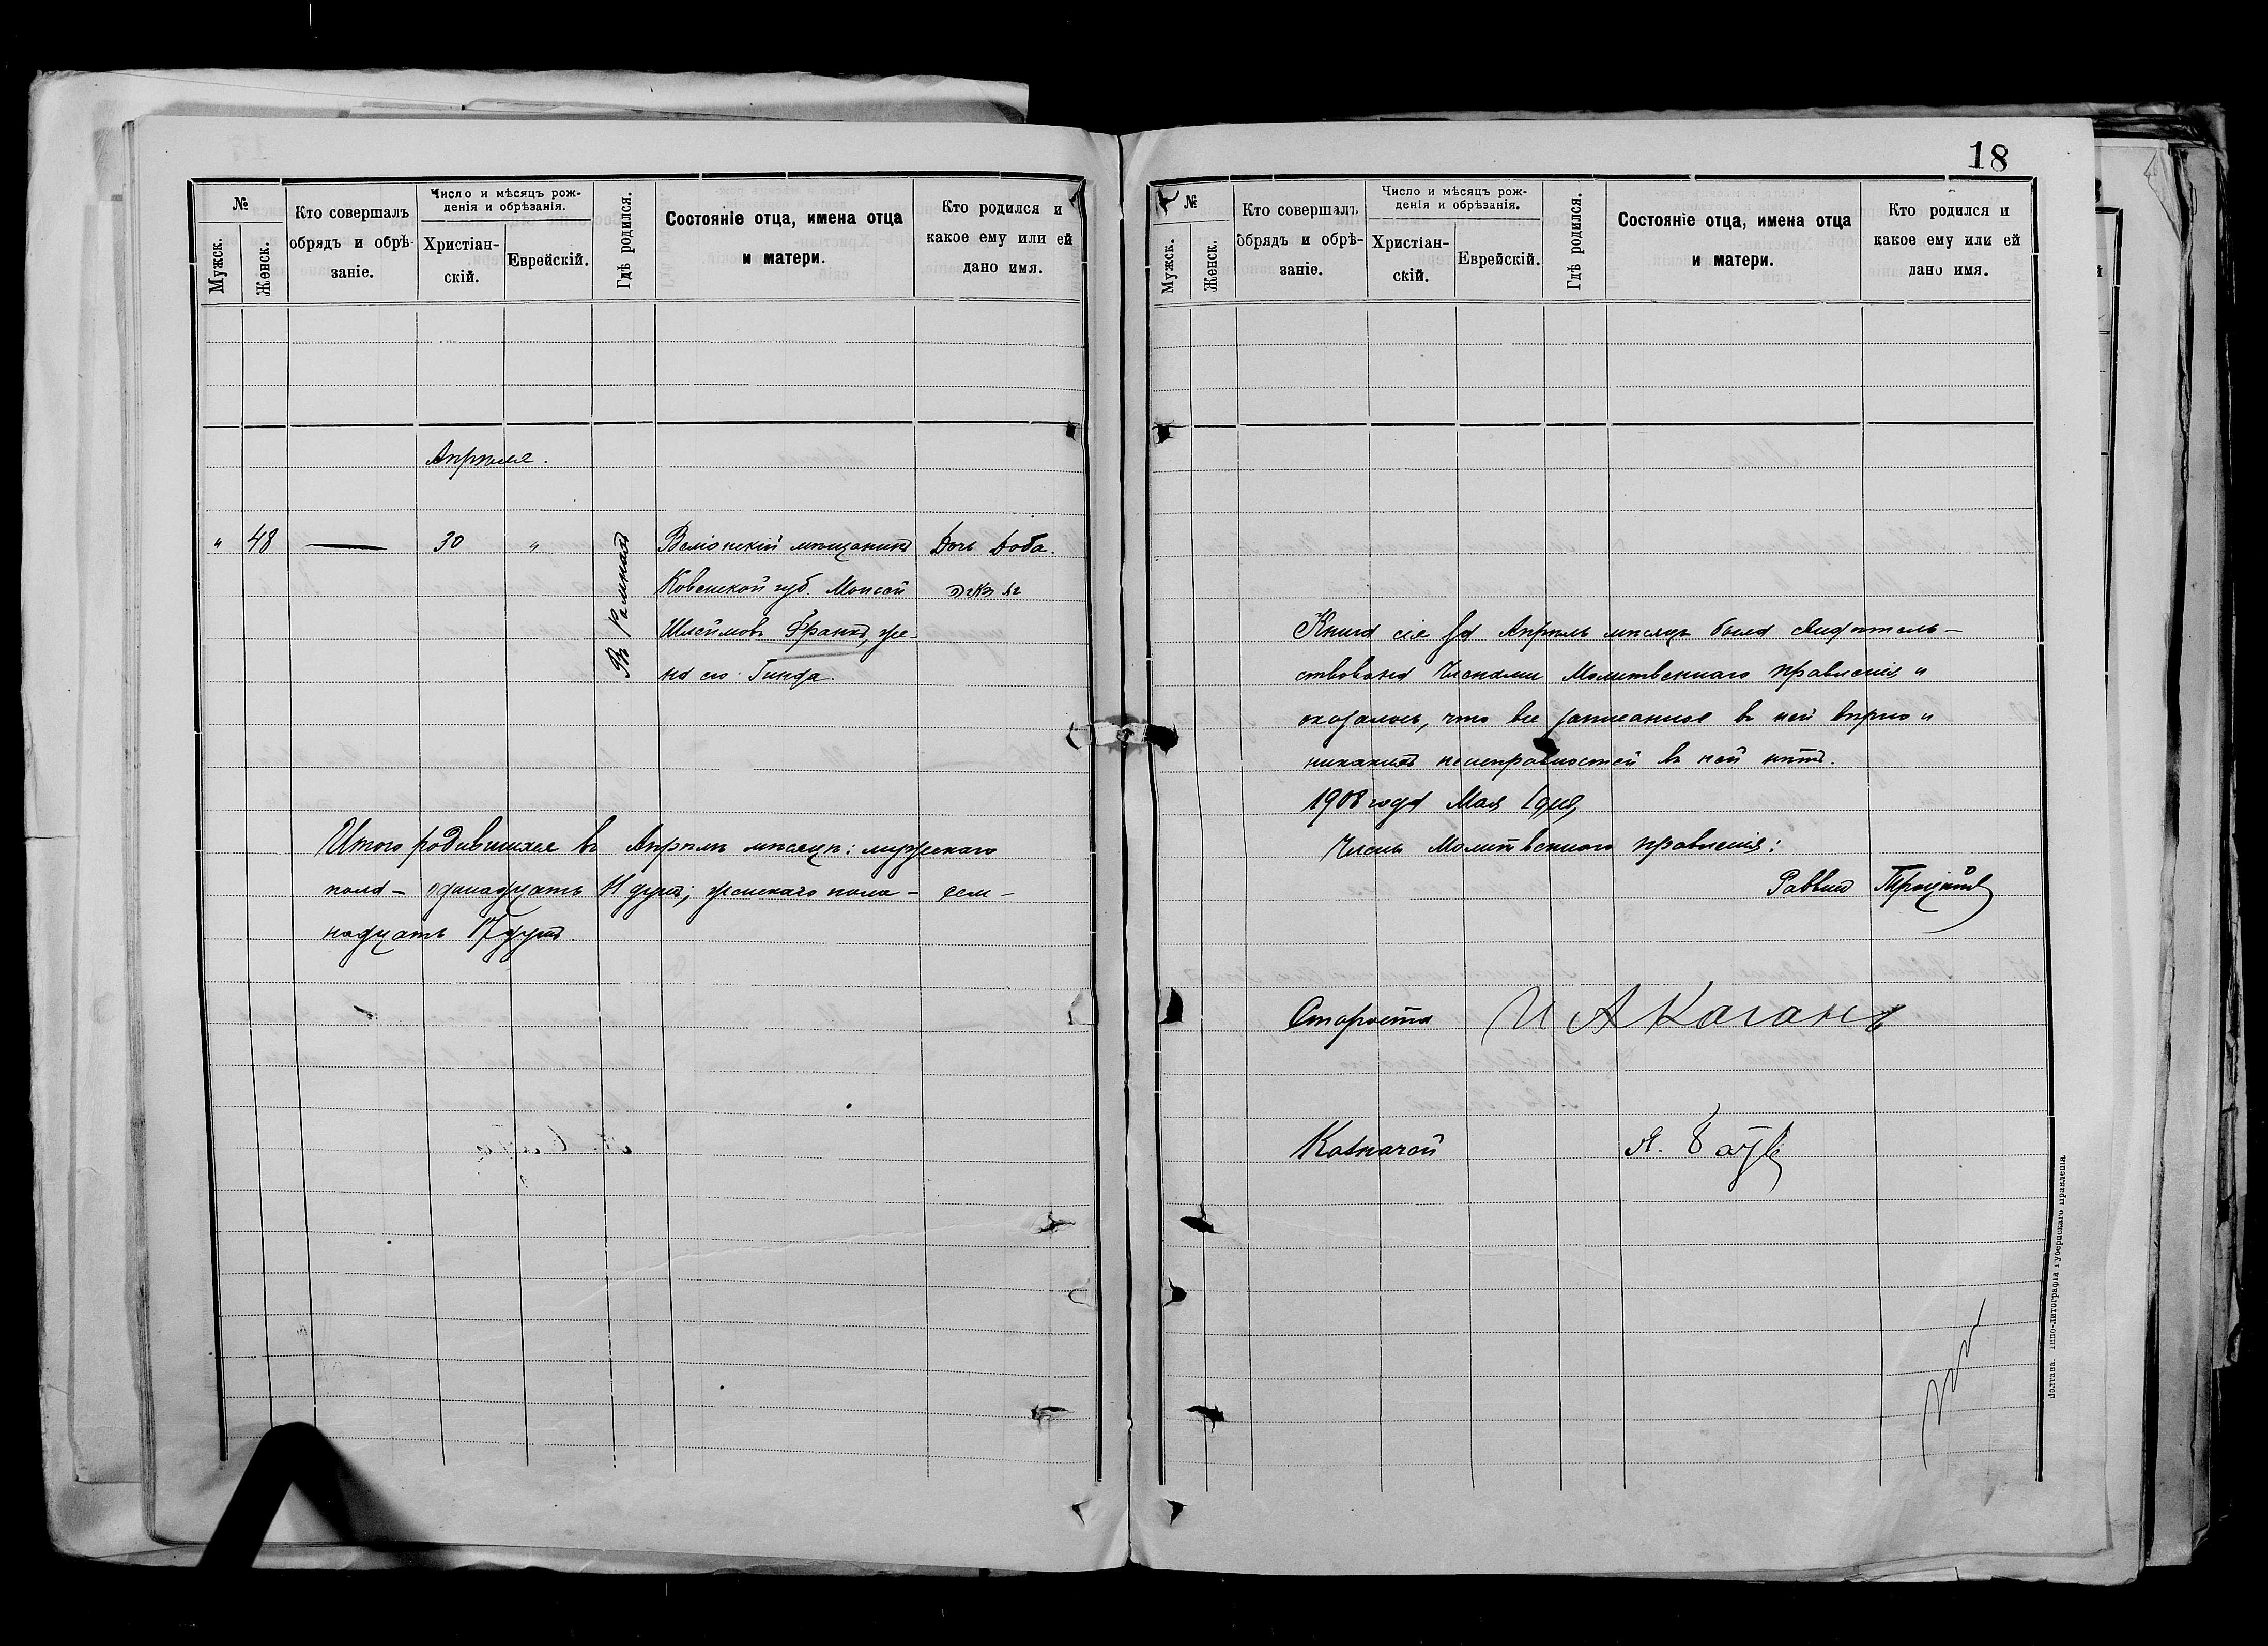 №
Мужск.
Женск.
Кто совершалъ
обрядъ и обрѣ-
заніе.
Число и мѣсяцъ рож-
денія и обрѣзанія.
Христіан-
скій.
Еврейскій.
Гдѣ родился.
Состояніе отца, имена отца
и матери.
Кто родился и
какое ему или ей
дано имя.
Апрѣля.
" 48 — 30 "
Въ Ромнахъ
Веліонскій мѣщанинъ
Ковенской губ. Моисей
Шлеймовъ Франкъ, же-
на его Гинда.
Дочь Доба.
Итого родившихся въ Апрѣлѣ мѣсяцѣ: мужескаго
пола — одинадцать 11 душъ; женскаго пола — сем-
надцать 17 душъ
18
№
Мужск.
Женск.
Кто совершалъ
обрядъ и обрѣ-
заніе.
Число и мѣсяцъ рож-
денія и обрѣзанія.
Христіан-
скій.
Еврейскій.
Гдѣ родился.
Состояніе отца, имена отца
и матери.
Кто родился и
какое ему или ей
дано имя.
Книга сія за Апрѣль мѣсяцъ была свидѣтель-
ствована Членами Молитвеннаго правленія и
оказалось, что все записанное въ ней вѣрно и
никакихъ неисправностей въ ней нѣтъ.
1908 года Мая 1 дня,
Члены Молитвеннаго правленія:
Раввинъ
Староста И А Каганъ
Казначей Я.
Полтава. Типо-литографія Губернскаго Правленія.